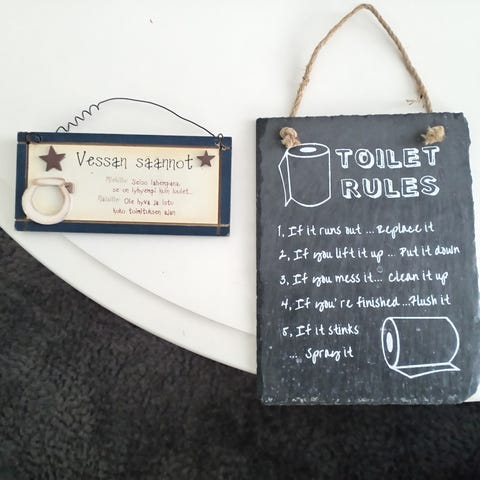 Vessan säännöt
Miehille: Seiso lähempänä,
se on lyhyempi kuin luulet...
Naisille: Ole hyvä ja istu
koko toimituksen ajan
TOILET
RULES
1, If it runs out ... Replace it
2, If you lift it up ... Put it down
3, If you mess it... clean it up
4, If you're finished ...Flush it
5, If it stinks
... Spray it